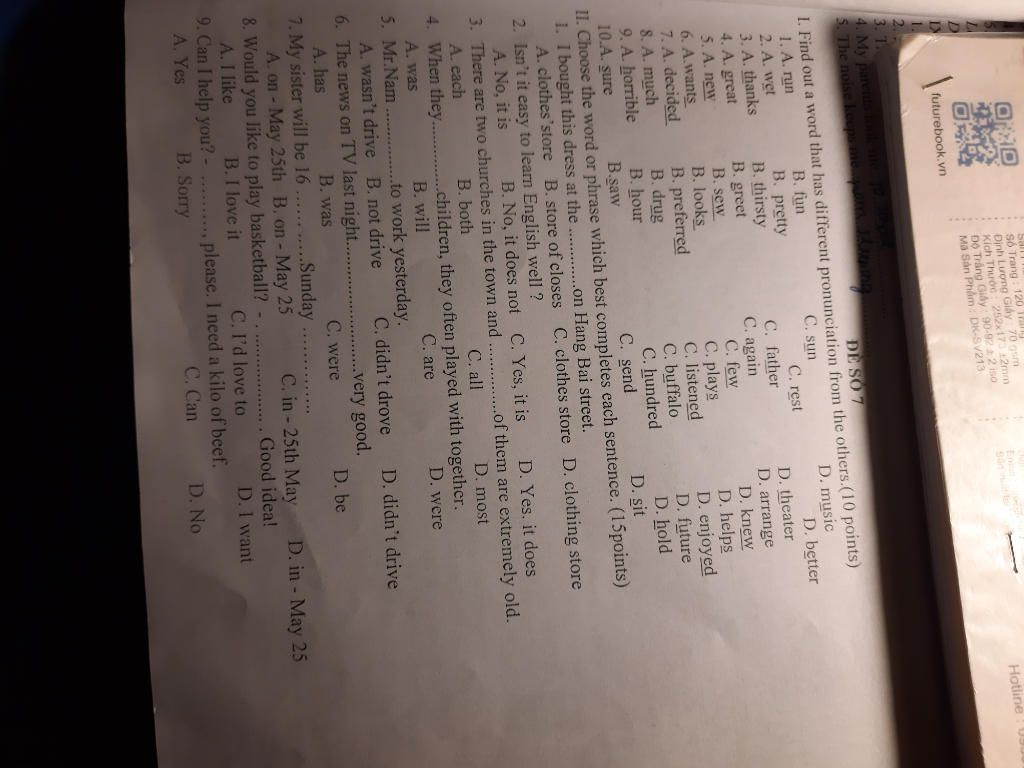 futurebook.vn
Số Trang : 120 trang
Định Lượng Giấy : 70 gsm
Kích Thước : 252x172 ±2mm
Độ Trắng Giấy : 90-92 ± 2 iso
Mã Sản Phẩm : DK-SV213
Hotline :
4. My parents
5. The noise keeps me
ĐỀ SỐ 7
I. Find out a word that has different pronunciation from the others.(10 points)
1. A. run B. fun C. sun D. music
2. A. wet B. pretty C. rest D. better
3 A. thanks B. thirsty C. father D. theater
4. A. great B. greet C. again D. arrange
5. A. new B. sew C. few D. knew
6. A wants B. looks C. plays D. helps
7. A. decided B. preferred C. listened D. enjoyed
8. A. much B. drug C. buffalo D. future
9. A. horrible B. hour C. hundred D. hold
10.A. sure B.saw C. send D. sit
II. Choose the word or phrase which best completes each sentence. (15points)
1. I bought this dress at the ..........on Hang Bai street.
A. clothes'store B. store of closes C. clothes store D. clothing store
2. Isn't it easy to learn English well ?
A. No, it is B. No, it does not C. Yes, it is D. Yes, it does
3. There are two churches in the town and ............of them are extremely old.
A. each B. both C. all D. most
4. When they...........children, they often played with together.
A. was B. will C. are D. were
5. Mr.Nam..................to work yesterday.
A. wasn't drive B. not drive C. didn't drove D. didn't drive
6. The news on TV last night..........................very good.
A. has B. was C. were D. be
7. My sister will be 16 ... ......Sunday ...............
A. on - May 25th B. on - May 25 C. in - 25th May D. in - May 25
8. Would you like to play basketball? - ................... Good idea!
A. I like B. I love it C. I'd love to D. I want
9. Can I help you? - .........., please. I need a kilo of beef.
A. Yes B. Sorry C. Can D. No